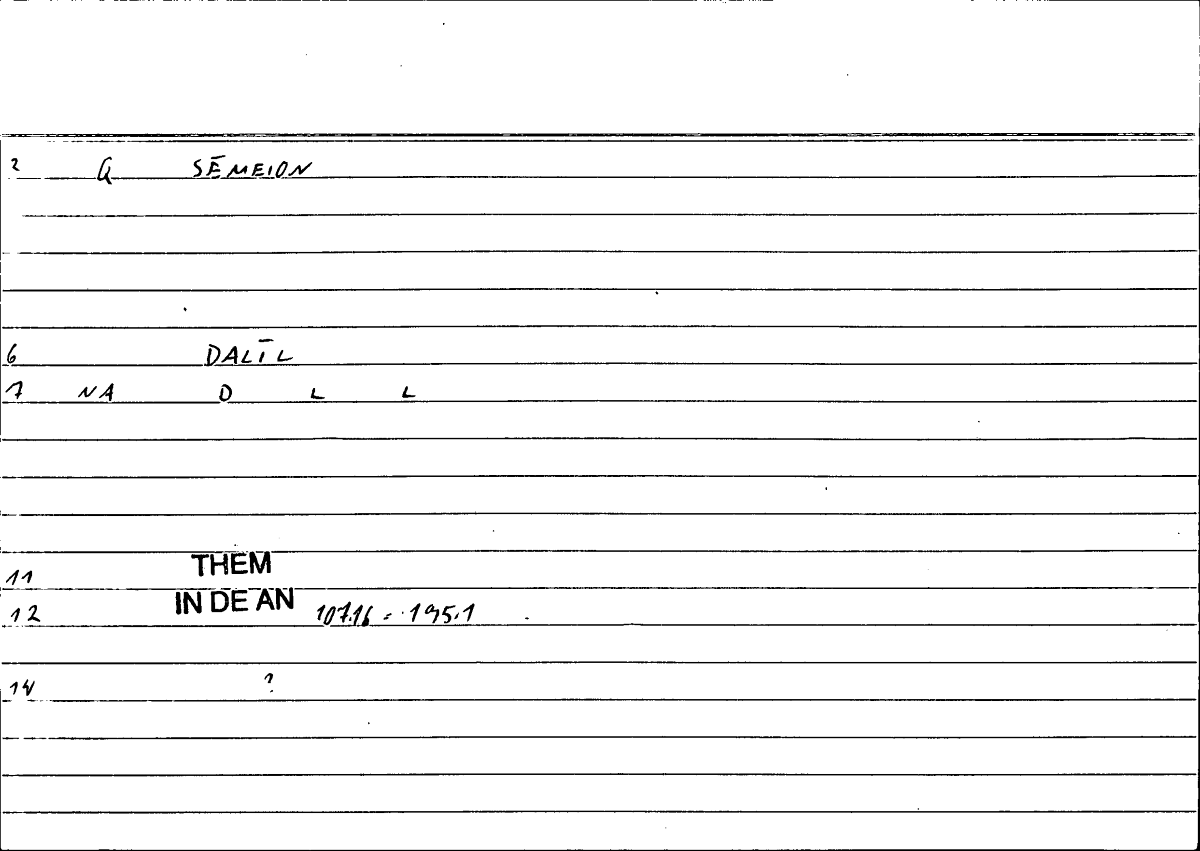 2 Q SĒMEION
6 DALĪL
7 NA D L L
11 THEM
12 IN DE AN 107.16 = 195.1
14 ?